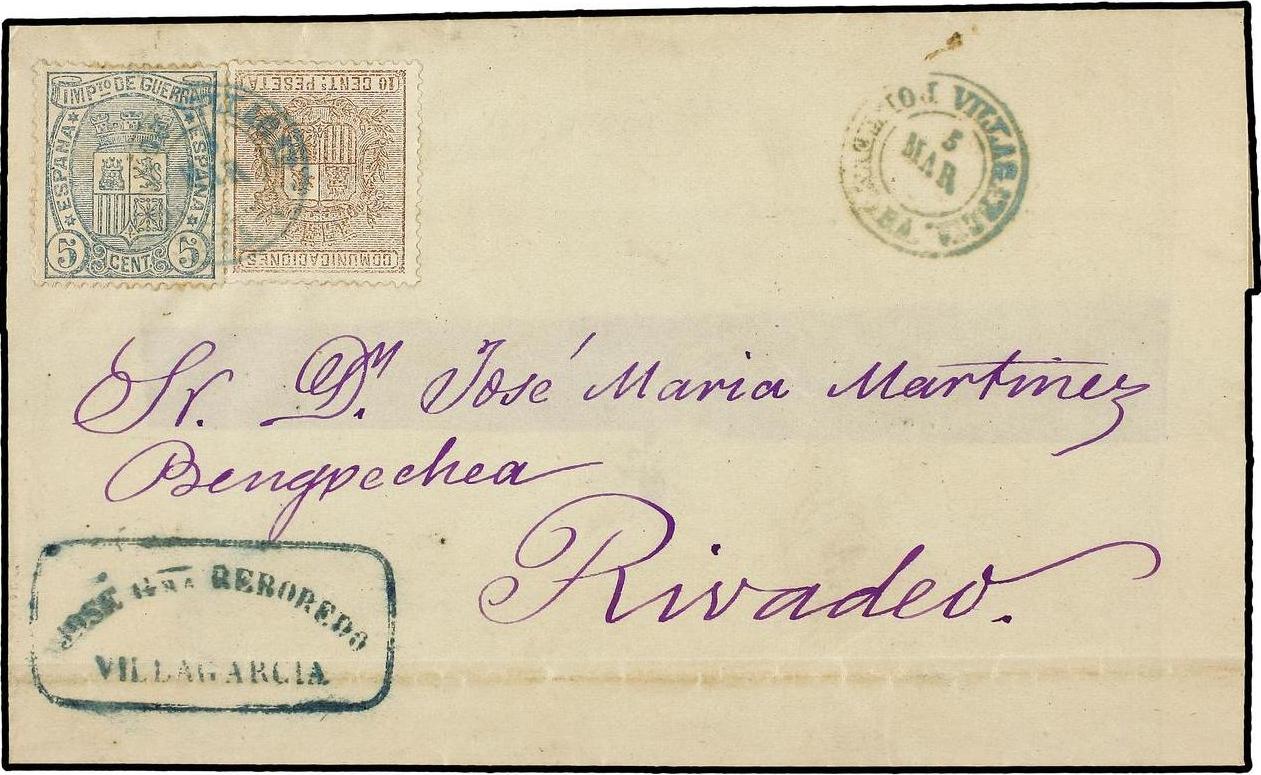 IMPTO DE GUERRA
ESPAÑA
ESPAÑA
5 CENT. 5
10 CENTS PESETA
COMUNICACIONES
MAR
VILLAGARCIA.
5
MAR
Sr. Dn. José Maria Martinez
Bengoechea
Rivadeo.
JOSÉ Mª REBOREDO
VILLAGARCIA